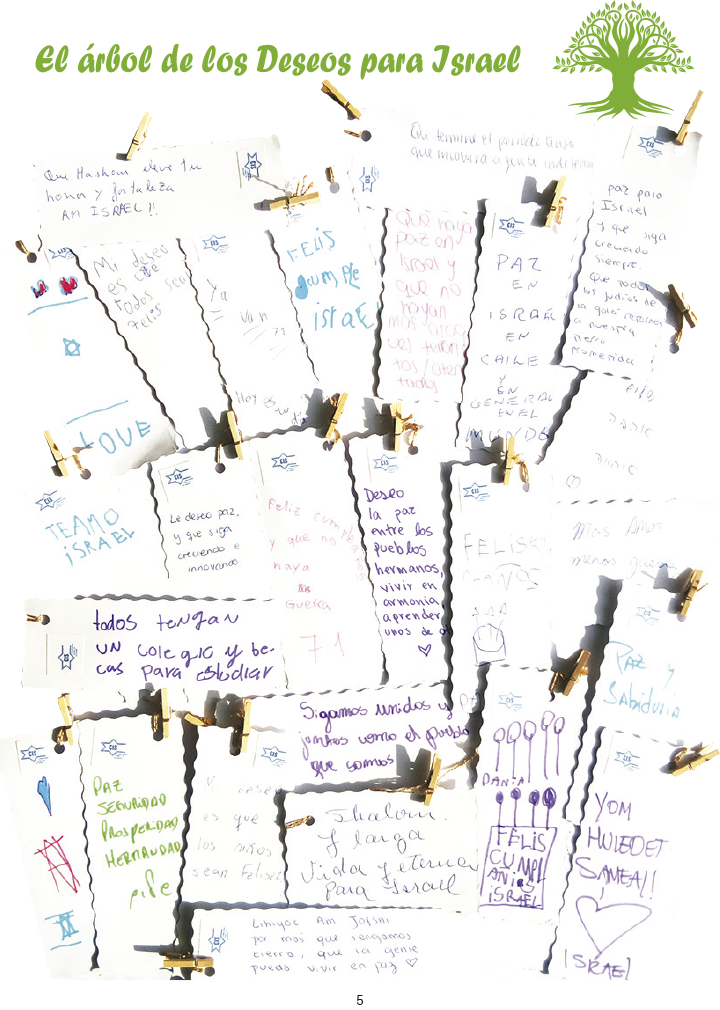 El árbol de los Deseos para Israel
Que Hashem eleve tu
honra y fortaleza
AM ISRAEL!!
Que termine el periodo tenso
que involucra a gente
paz para
Israel
y que siga
creciendo
siempre.
Que todos
los judios de
la
a nuestra
tierra
prometida
LOVE
Mi deseo
es que
todos sean
felis
Ya
Van
71
Hoy
FELIS
cumple
israel
Que haya
paz en
Israel y
que no
hayan
mas
PAZ
EN
ISRAEL
EN
CHILE
Y
EN
GENERAL
EN EL
MUNDO
CIS
TEAMO
iSRAEL
CIS
Le deseo paz,
y que siga
creciendo e
innovando
Feliz cumpleaños
y que no
haya
Guerra
71
CIS
Deseo
la paz
entre los
pueblos
hermanos,
vivir en
armonia,
aprender
unos de
FELISS
Mas Amor
menos guerra
todos tengan
un colegio y be-
cas para estudiar
CIS
Paz y
Sabiduria
Sigamos unidos y
juntos como el pueblo
que somos
CIS
CIS
PAZ
SEGURIDAD
PROSPERIDAD
HERMANDAD
CIS
Mi deseo
es que
los niños
sean Felices
Shalom.
Y larga
Vida y eterna
Para Israel
CIS
FELIS
CUMPL
AÑOS
ISRAEL
CIS
YOM
HULEDET
SAMEAJ!!
ISRAEL
CIS
Am Jofshi
por mas que tengamos
cierro, que la gente
pueda vivir en paz
5